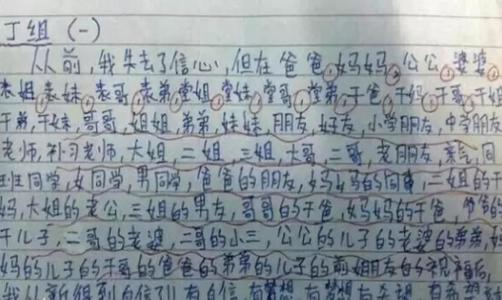 丁组 (一)
从前,我失去了信心,但在爸爸,妈妈,公公,婆婆
表姐,表妹,表哥,表弟,堂姐,堂妹,堂哥,堂弟,干爸,干妈,干哥,干姐
干弟,干妹,哥哥,姐姐,弟弟,妹妹,朋友,好友,小学朋友,中学朋友
老师,补习老师,大姐,二姐,三姐,大哥,二哥,老朋友,亲戚,同
班同学,女同学,男同学,爸爸的朋友,妈妈的同事,二姐的干
妈,大姐的老公,三姐的男友,哥哥的干爸,妈妈的干爸,爷爷的
干儿子,二哥的老婆,二哥的小三,公公的儿子的老婆的弟弟,
妈的儿子的干哥的爸爸的弟弟的儿子的前女朋友的祝福后,
我从新得到自信了!有自信,有梦想